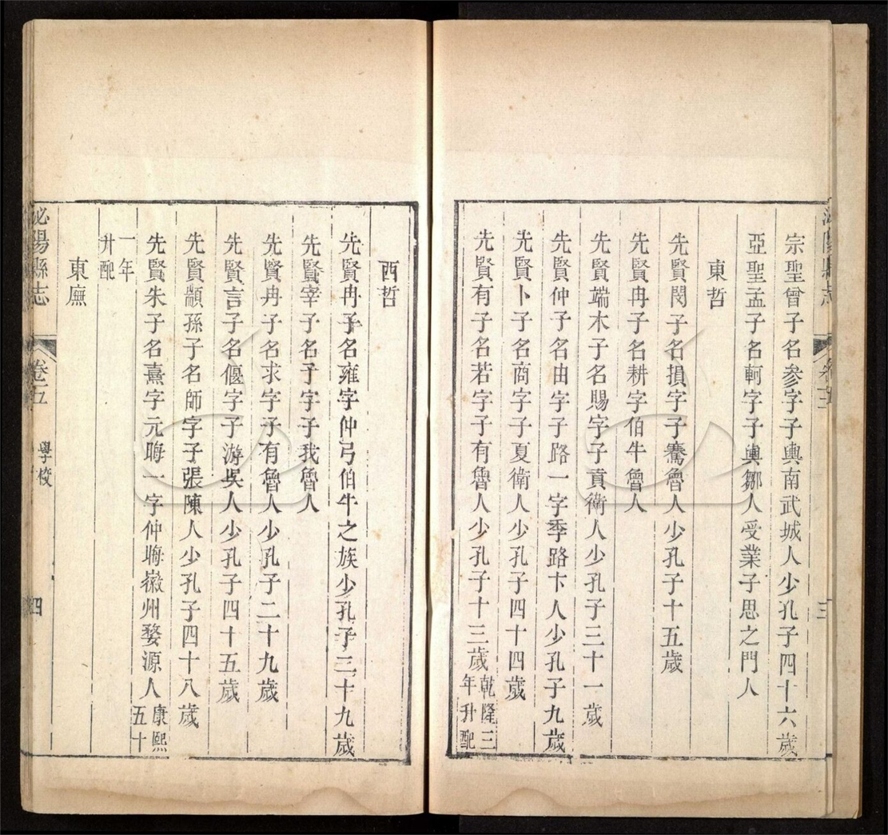 宗聖曾子名參字子輿南武城人少孔子四十六歲
亞聖孟子名軻字子輿鄒人受業子思之門人
東哲
先賢閔子名損字子騫魯人少孔子十五歲
先賢冉子名耕字伯牛魯人
先賢端木子名賜字子貢衛人少孔子三十一歲
先賢仲子名由字子路一字季路卞人少孔子九歲
先賢卜子名商字子夏衛人少孔子四十四歲
先賢有子名若字子有魯人少孔子十三歲乾隆三
年升配
西哲
先賢冉子名雍字仲弓伯牛之族少孔子二十九歲
先賢宰子名予字子我魯人
先賢冉子名求字子有魯人少孔子二十九歲
先賢言子名偃字子游吳人少孔子四十五歲
先賢顓孫子名師字子張陳人少孔子四十八歲
先賢朱子名熹字元晦一字仲晦徽州婺源人康熙
五十
一年
升配
東廡
泌陽縣志
卷五
學校
四